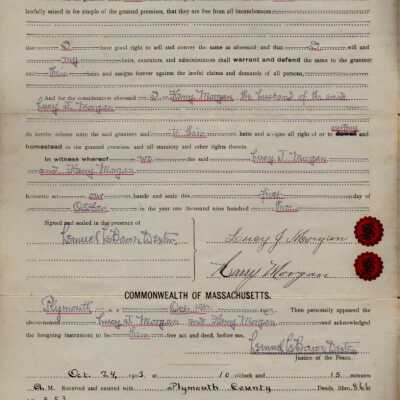 lawfully seized in fee simple of the granted premises, that they are free from all incumbrances
that I have good right to sell and convey the same as aforesaid; and that I will and
my heirs, executors, and administrators shall warrant and defend the same to the grantee
their heirs and assigns forever against the lawful claims and demands of all persons,
And for the consideration aforesaid I, Harry Morgan the husband of the said
Lucy J. Morgan
do hereby release unto the said grantees and their heirs and assigns all right of or to
homestead in the granted premises, and all statutory and other rights therein.
In witness whereof we the said Lucy J. Morgan
and Harry Morgan
hereunto set our hands and seals this first day of
October in the year one thousand nine hundred
Signed and sealed in presence of
Lucy J Morgan
Harry Morgan
COMMONWEALTH OF MASSACHUSETTS.
Plymouth Then personally appeared
the above-named Lucy J. Morgan and Harry Morgan and acknowledged
the foregoing instrument to be their free act and deed, before me,
Justice of the Peace.
Oct. 24, 1903 10 o'clock and 15 minutes
A. M. Received and entered with Plymouth County Deeds, libro 866